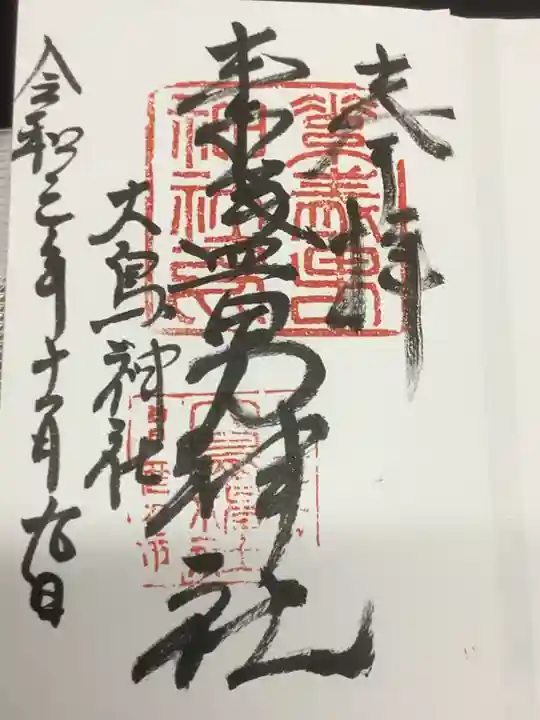 奉拝
素盞男神社
大鳥神社
令和三年十一月九日